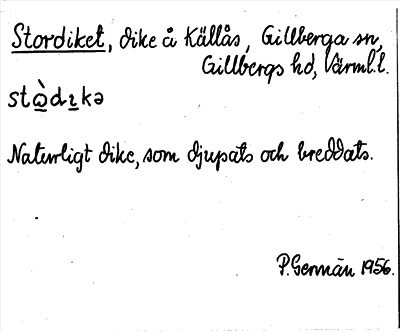 Stordiket, dike å Källås, Gillberga sn,
Gillbergs hd, Värml. l.
stɷ̀dɩkə
Naturligt dike, som djupats och breddats.
P. Germän 1956.